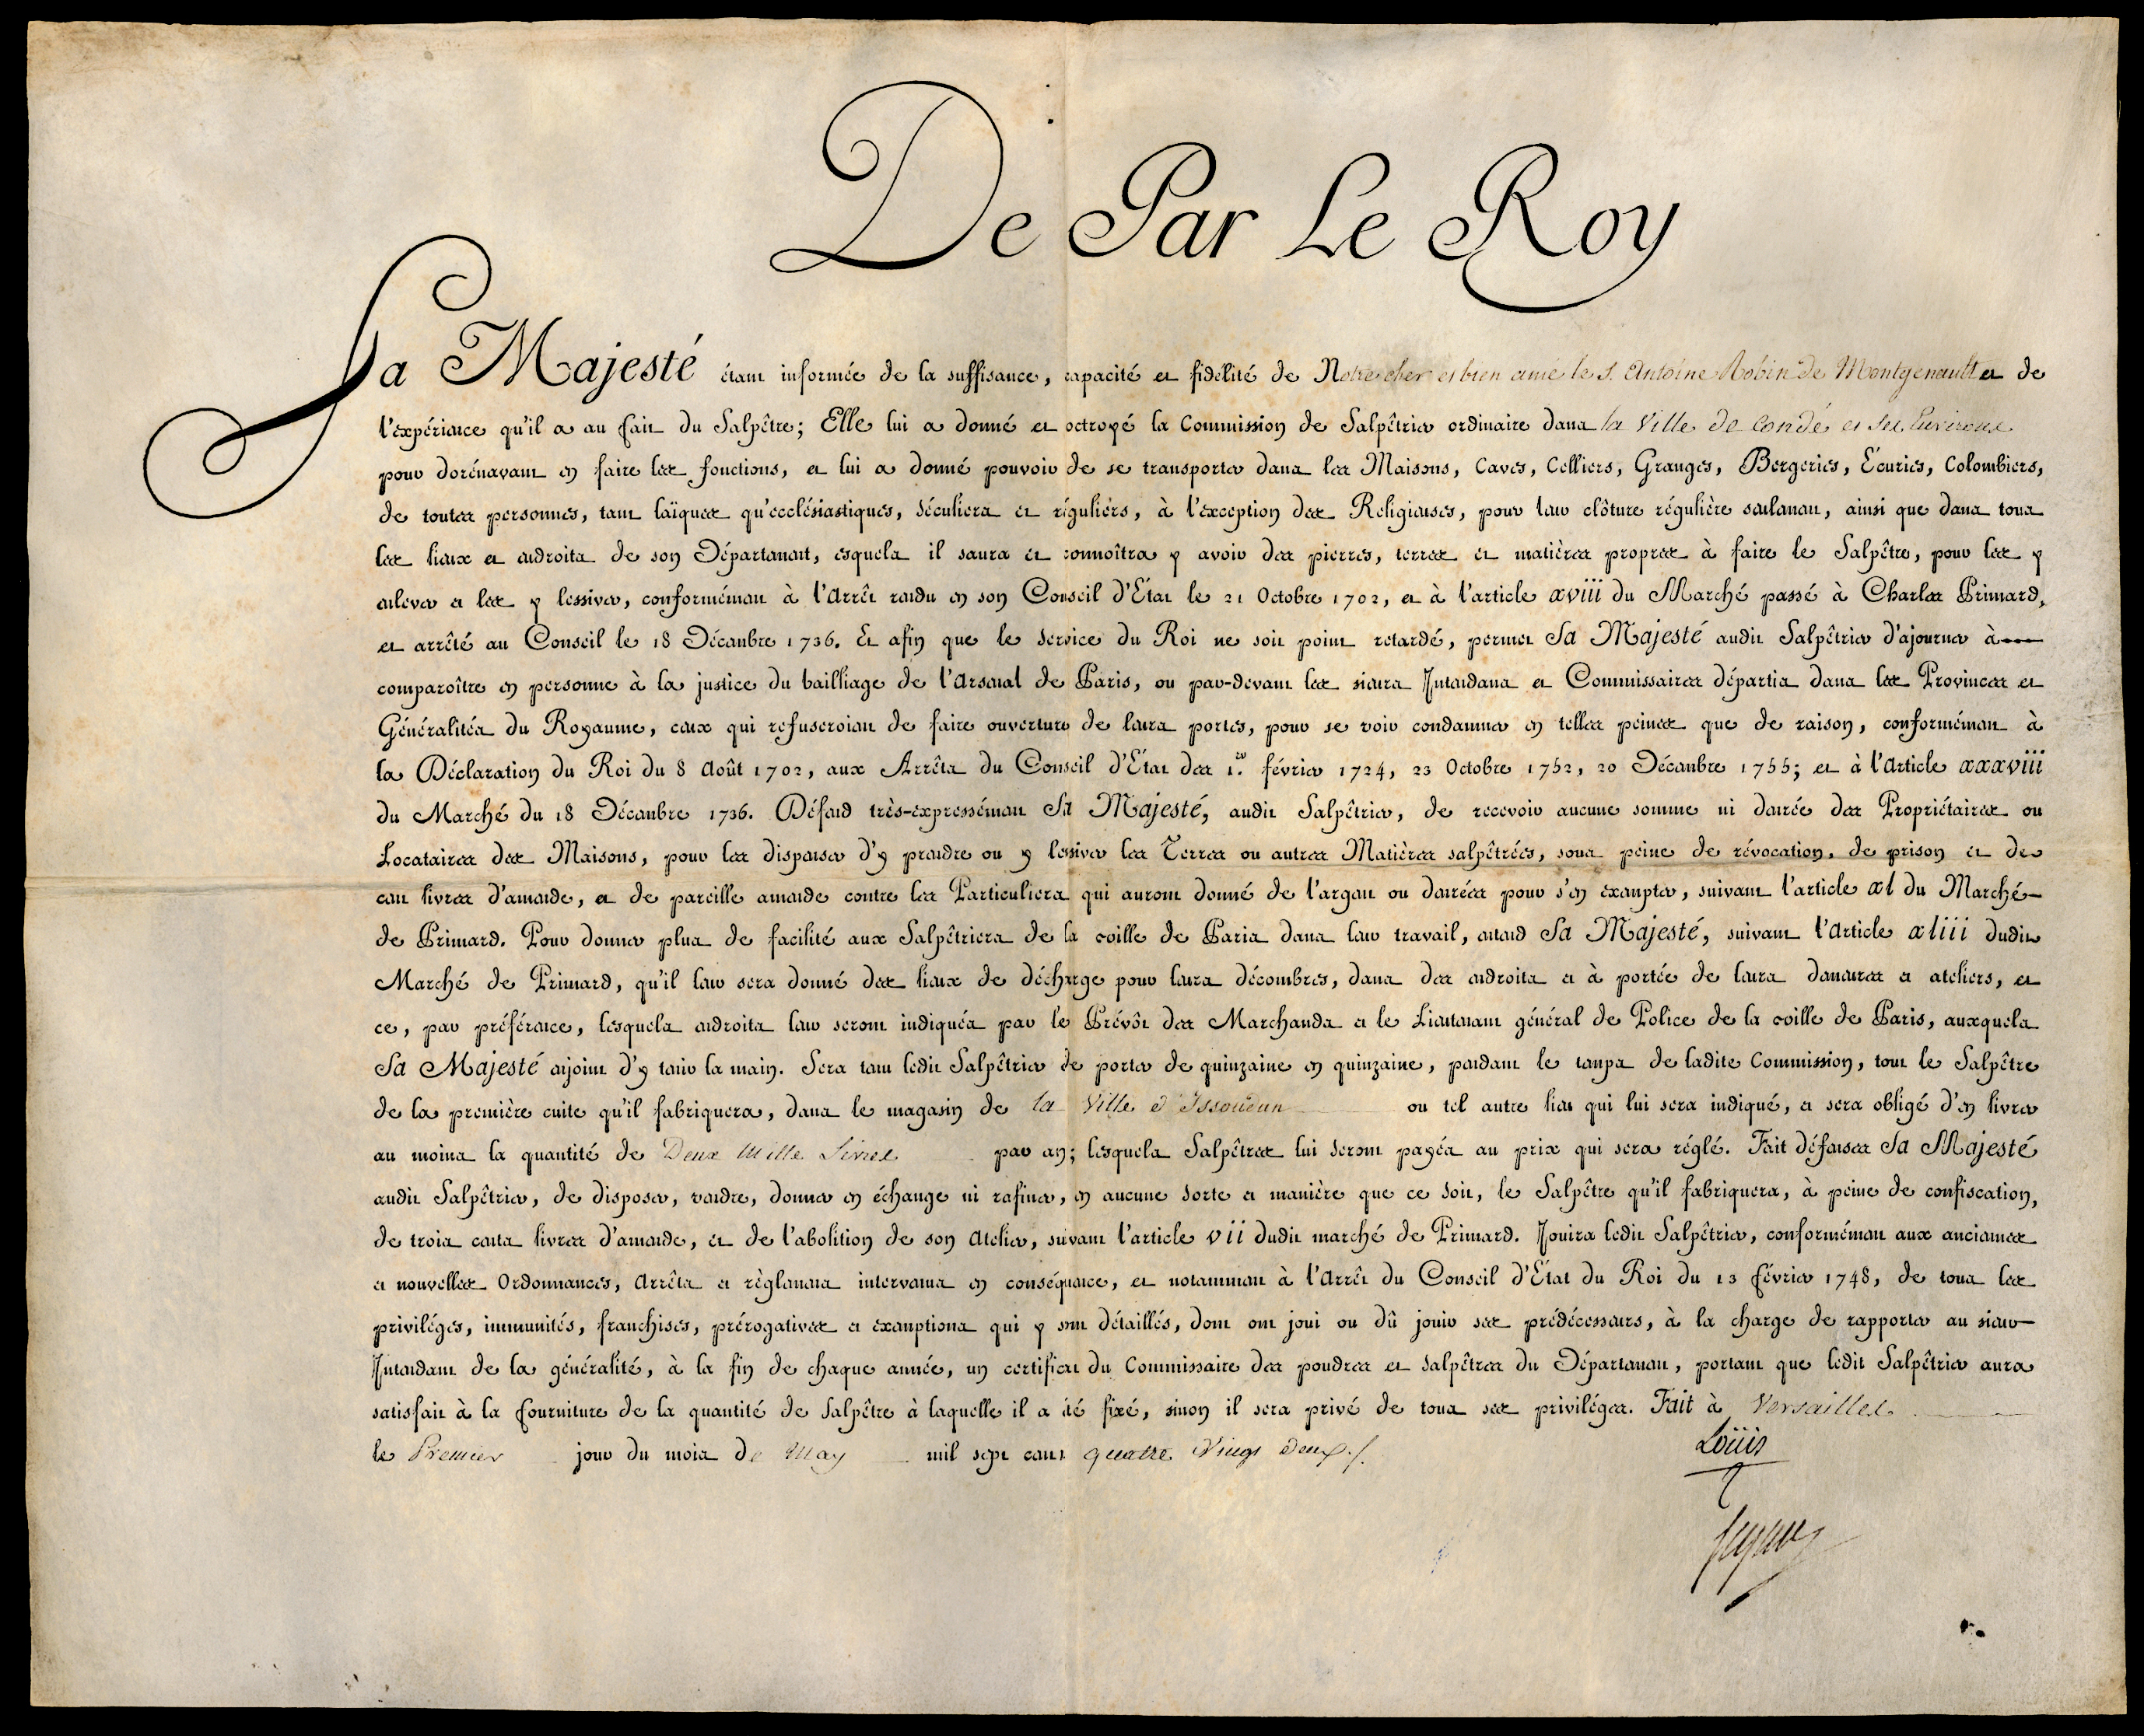 De Par Le Roy
Sa Majesté étant informée de la suffisance, capacité et fidélité de Notre cher et bien amé le S. Antoine Robin de Montgenault et de
l'expérience qu'il a au fait du Salpêtre; Elle lui a donné et octroyé la Commission de Salpêtrier ordinaire dans la Ville de Condé et ses Environs
pour dorénavant en faire les fonctions, et lui a donné pouvoir de se transporter dans les Maisons, Caves, Celliers, Granges, Bergeries, Écuries, Colombiers,
de toutes personnes, tant laïques qu'ecclésiastiques, séculiers et réguliers, à l'exception des Religieuses, pour leur clôture régulière seulement, ainsi que dans tous
les lieux et endroits de son Département, esquels il saura et connoîtra y avoir des pierres, terres et matières propres à faire le Salpêtre, pour les y
enlever et les y lessiver, conformément à l'Arrêt rendu en son Conseil d'État le 21 Octobre 1702, et à l'article xviii du Marché passé à Charles Primard,
et arrêté au Conseil le 18 Décembre 1736. Et afin que le service du Roi ne soit point retardé, permet Sa Majesté audit Salpêtrier d'ajourner à
comparoître en personne à la justice du bailliage de l'Arsenal de Paris, ou par-devant les sieurs Intendans et Commissaires départis dans les Provinces et
Généralités du Royaume, ceux qui refuseroient de faire ouverture de leurs portes, pour se voir condamner en telles peines que de raison, conformément à
la Déclaration du Roi du 8 Août 1702, aux Arrêts du Conseil d'État des 1.er février 1724, 23 Octobre 1752, 20 Décembre 1755; et à l'Article xxxviii
du Marché du 18 Décembre 1736. Défend très-expressément Sa Majesté, audit Salpêtrier, de recevoir aucune somme ni denrée des Propriétaires ou
Locataires des Maisons, pour les dispenser d'y prendre ou y lessiver les Terres ou autres Matières salpêtrées, sous peine de révocation, de prison et de
cent livres d'amende, et de pareille amende contre les Particuliers qui auront donné de l'argent ou denrées pour s'en exempter, suivant l'article xl du Marché
de Primard. Pour donner plus de facilité aux Salpêtriers de la ville de Paris dans leur travail, entend Sa Majesté, suivant l'Article xliii dudit
Marché de Primard, qu'il leur sera donné des lieux de décharge pour leurs décombres, dans des endroits et à portée de leurs demeures et ateliers, et
ce, par préférence, lesquels endroits leur seront indiqués par le Prévôt des Marchands et le Lieutenant général de Police de la ville de Paris, auxquels
Sa Majesté enjoint d'y tenir la main. Sera tenu ledit Salpêtrier de porter de quinzaine en quinzaine, pendant le temps de ladite Commission, tout le Salpêtre
de la première cuite qu'il fabriquera, dans le magasin de la Ville d'Issoudun ou tel autre lieu qui lui sera indiqué, et sera obligé d'en livrer
au moins la quantité de Deux Mille Livres par an; lesquels Salpêtres lui seront payés au prix qui sera réglé. Fait défenses Sa Majesté
audit Salpêtrier, de disposer, vendre, donner en échange ni rafiner, en aucune sorte et manière que ce soit, le Salpêtre qu'il fabriquera, à peine de confiscation,
de trois cents livres d'amende, et de l'abolition de son Atelier, suivant l'article vii dudit marché de Primard. Jouira ledit Salpêtrier, conformément aux anciennes
et nouvelles Ordonnances, Arrêts et règlemens intervenus en conséquence, et notamment à l'Arrêt du Conseil d'État du Roi du 13 février 1748, de tous les
priviléges, immunités, franchises, prérogatives et exemptions qui y sont détaillés, dont ont joui ou dû jouir ses prédécesseurs, à la charge de rapporter au sieur
Intendant de la généralité, à la fin de chaque année, un certificat du Commissaire des poudres et salpêtres du Département, portant que ledit Salpêtrier aura
satisfait à la fourniture de la quantité de Salpêtre à laquelle il a été fixé, sinon il sera privé de tous ses priviléges. Fait à Versailles
le Premier jour du mois de May mil sept cent quatre Vingt Deux ./.
Loüis